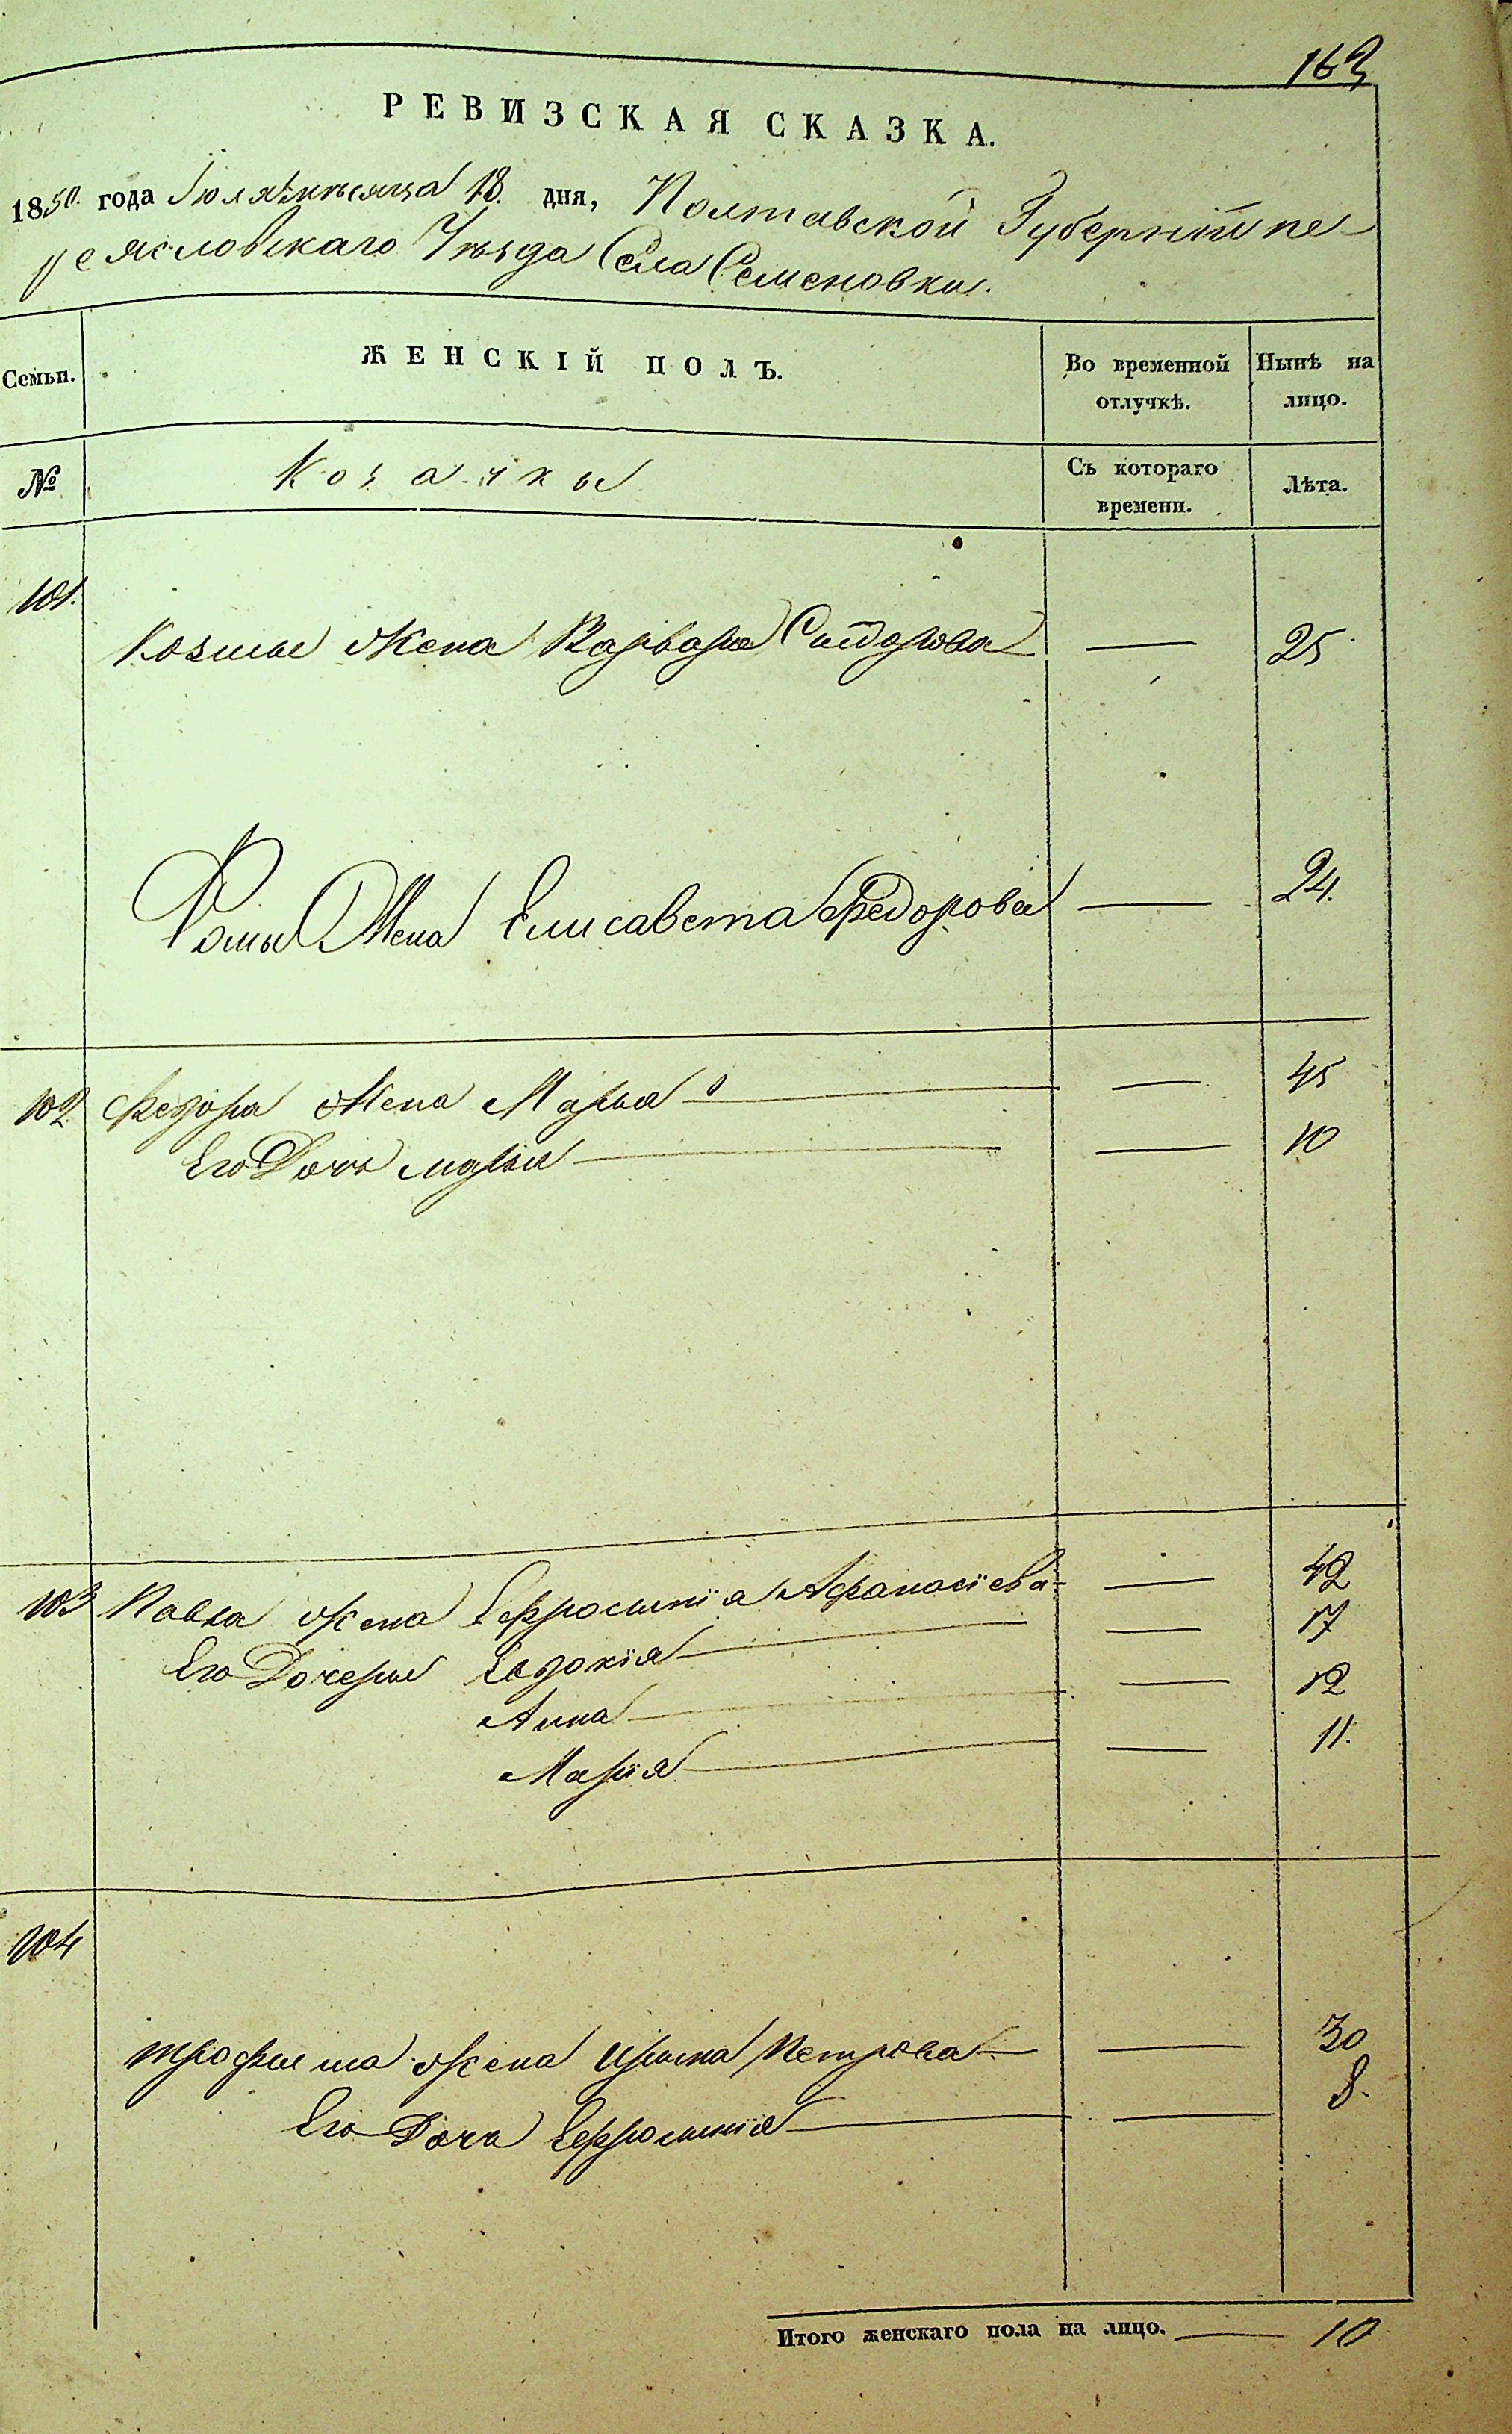 163
РЕВИЗСКАЯ СКАЗКА.
1850 года Іюля мѣсяца 18. дня, Полтавской Губерніи пе-
реясловскаго Уѣзда Села Семеновки.
Семьи.
ЖЕНСКІЙ ПОЛЪ.
Во временной
отлучкѣ.
Нынѣ на
лицо.
№
Козачки
Съ котораго
времени.
Лѣта.
101. Козмы Жена Варвара Сидорова — 25
Фомы Жена Елисавета Федорова — 24.
102 Федора Жена Марья — 45
Его Дочь марья — 10
103 Павла Жена Ефросинія Афанасіева — 42
Его Дочери Евдокія — 17
Анна — 12
Марія — 11.
104
трофима Жена Ирина Петрова — 30
Его Дочь Ефросинія — 8.
Итого женскаго пола на лицо. — 10